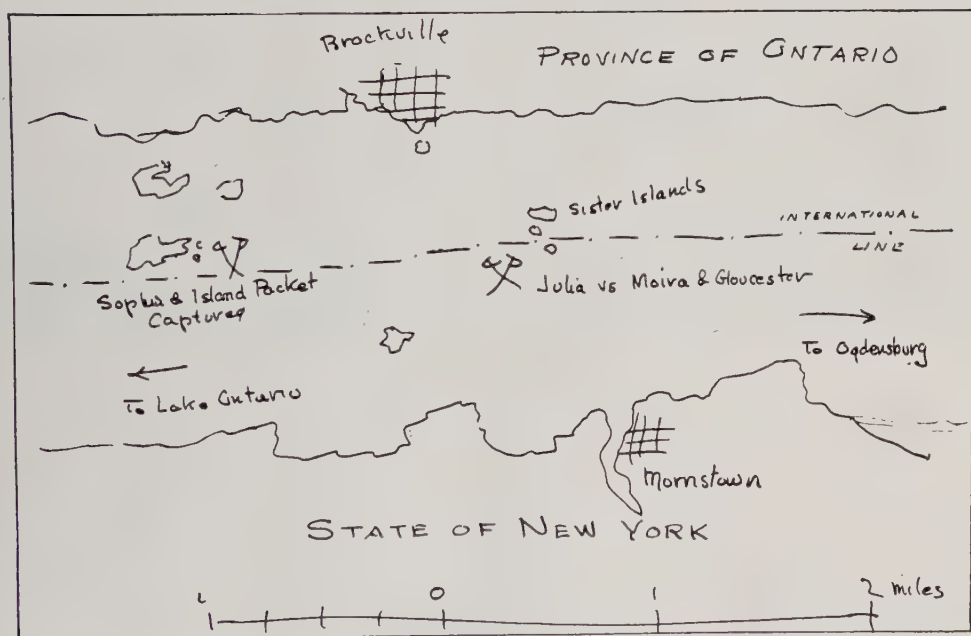 Brockville
PROVINCE OF ONTARIO
Sister Islands
INTERNATIONAL
LINE
Julia vs Moira & Gloucester
Sophia & Island Packet
Captured
To Ogdensburg
To Lake Ontario
Morristown
STATE OF NEW YORK
1 0 1 2 miles